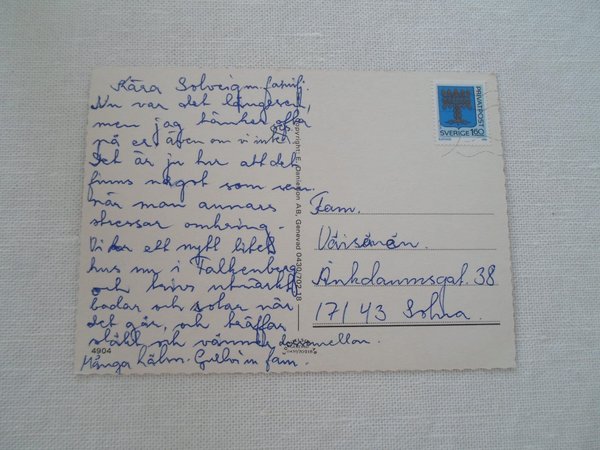 Kära Solveig m. familj.
Nu var det längesen,
men jag tänker ofta
på er även om vi inte
ses.
Det är ju tur att det
finns något som
när man annars
stressar omkring.
Vi har ett nytt litet
hus nu i Falkenberg
och trivs utmärkt
badar och solar när
det går, och träffar
släkt och vänner däremellan.
Många hälsn. m fam.
4904
Copyright: E. Danielsson AB, Genevad 0430/702 18
PRIVATPOST
SVERIGE 160
Fam.
Väisänän.
Änkdaumsgat. 38
171 43 Solna.